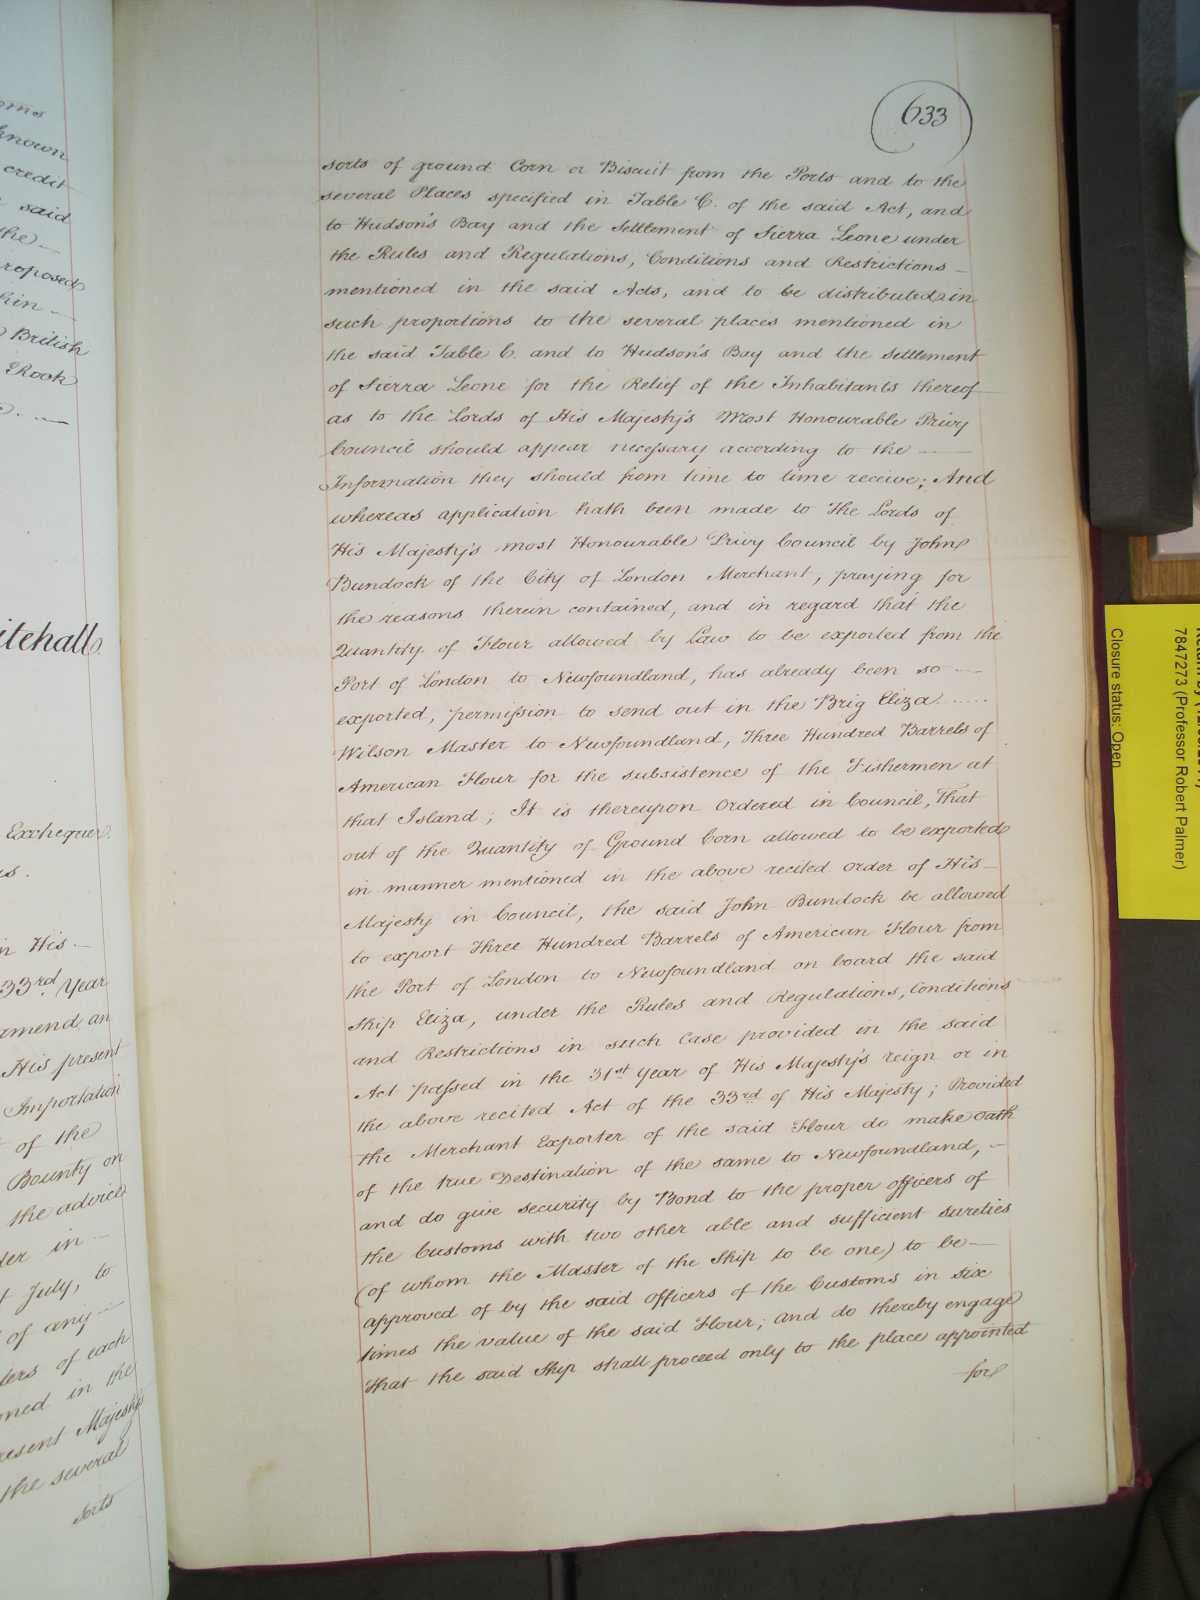 oms
known
credit
said
the
roposed
hin
British
Rook
itehall.
Exchequer.
us.
in His
33rd Year
amend an
His present
Importation
t of the
Bounty on
the advice
der in
t July, to
of any
ters of each
oned in the
resent Majesty's
the several
sorts
633
sorts of ground Corn or Biscuit from the Ports and to the
several Places specified in Table C. of the said Act, and
to Hudson's Bay and the Settlement of Sierra Leone under
the Rules and Regulations, Conditions and Restrictions
mentioned in the said Acts, and to be distributed in
such proportions to the several places mentioned in
the said Table C. and to Hudson's Bay and the settlement
of Sierra Leone for the Relief of the Inhabitants thereof
as to the Lords of His Majesty's Most Honourable Privy
Council should appear necessary according to the
Information they should from time to time receive; And
whereas application hath been made to The Lords of
His Majesty's most Honourable Privy Council by John
Bundock of the City of London Merchant, praying for
the reasons therein contained, and in regard that the
Quantity of Flour allowed by Law to be exported from the
Port of London to Newfoundland, has already been so
exported, permission to send out in the Brig Eliza ......
Wilson Master to Newfoundland, Three Hundred Barrels of
American Flour for the subsistence of the Fishermen at
that Island; It is thereupon Ordered in Council, That
out of the Quantity of Ground Corn allowed to be exported
in manner mentioned in the above recited Order of His
Majesty in Council, the said John Bundock be allowed
to export Three Hundred Barrels of American Flour from
the Port of London to Newfoundland on board the said
Ship Eliza, under the Rules and Regulations, Conditions
and Restrictions in such Case provided in the said
Act passed in the 31st Year of His Majesty's reign or in
the above recited Act of the 33rd of His Majesty; Provided
the Merchant Exporter of the said Flour do make Oath
of the true Destination of the same to Newfoundland,
and do give security by Bond to the proper officers of
the Customs with two other able and sufficient sureties
(of whom the Master of the Ship to be one) to be
approved of by the said Officers of the Customs in six
times the value of the said Flour; and do thereby engage
That the said Ship shall proceed only to the place appointed
for
7847273 (Professor Robert Palmer)
Closure status: Open